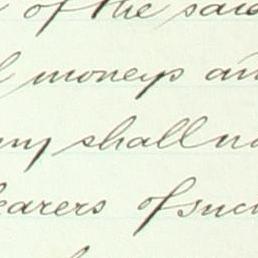 of the said
moneys an
ny shall no
earers of such